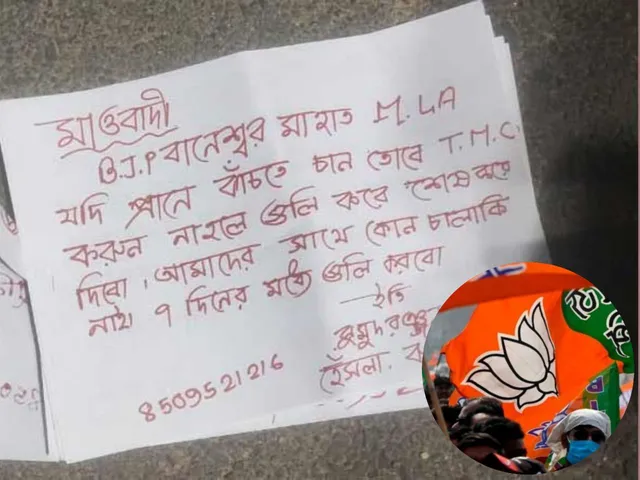 মাওবাদী
B.J.P বানেশ্বর মাহাত M.L.A
যদি প্রানে বাঁচতে চান তোবে T.M.C.
করুন নাহলে গুলি করে শেষ করে
দিবো। আমাদের সাথে কোন চালাকি
নায় ৭ দিনের মধ্যে গুলি করবো
ইতি
হেঁসলা.
8509521216